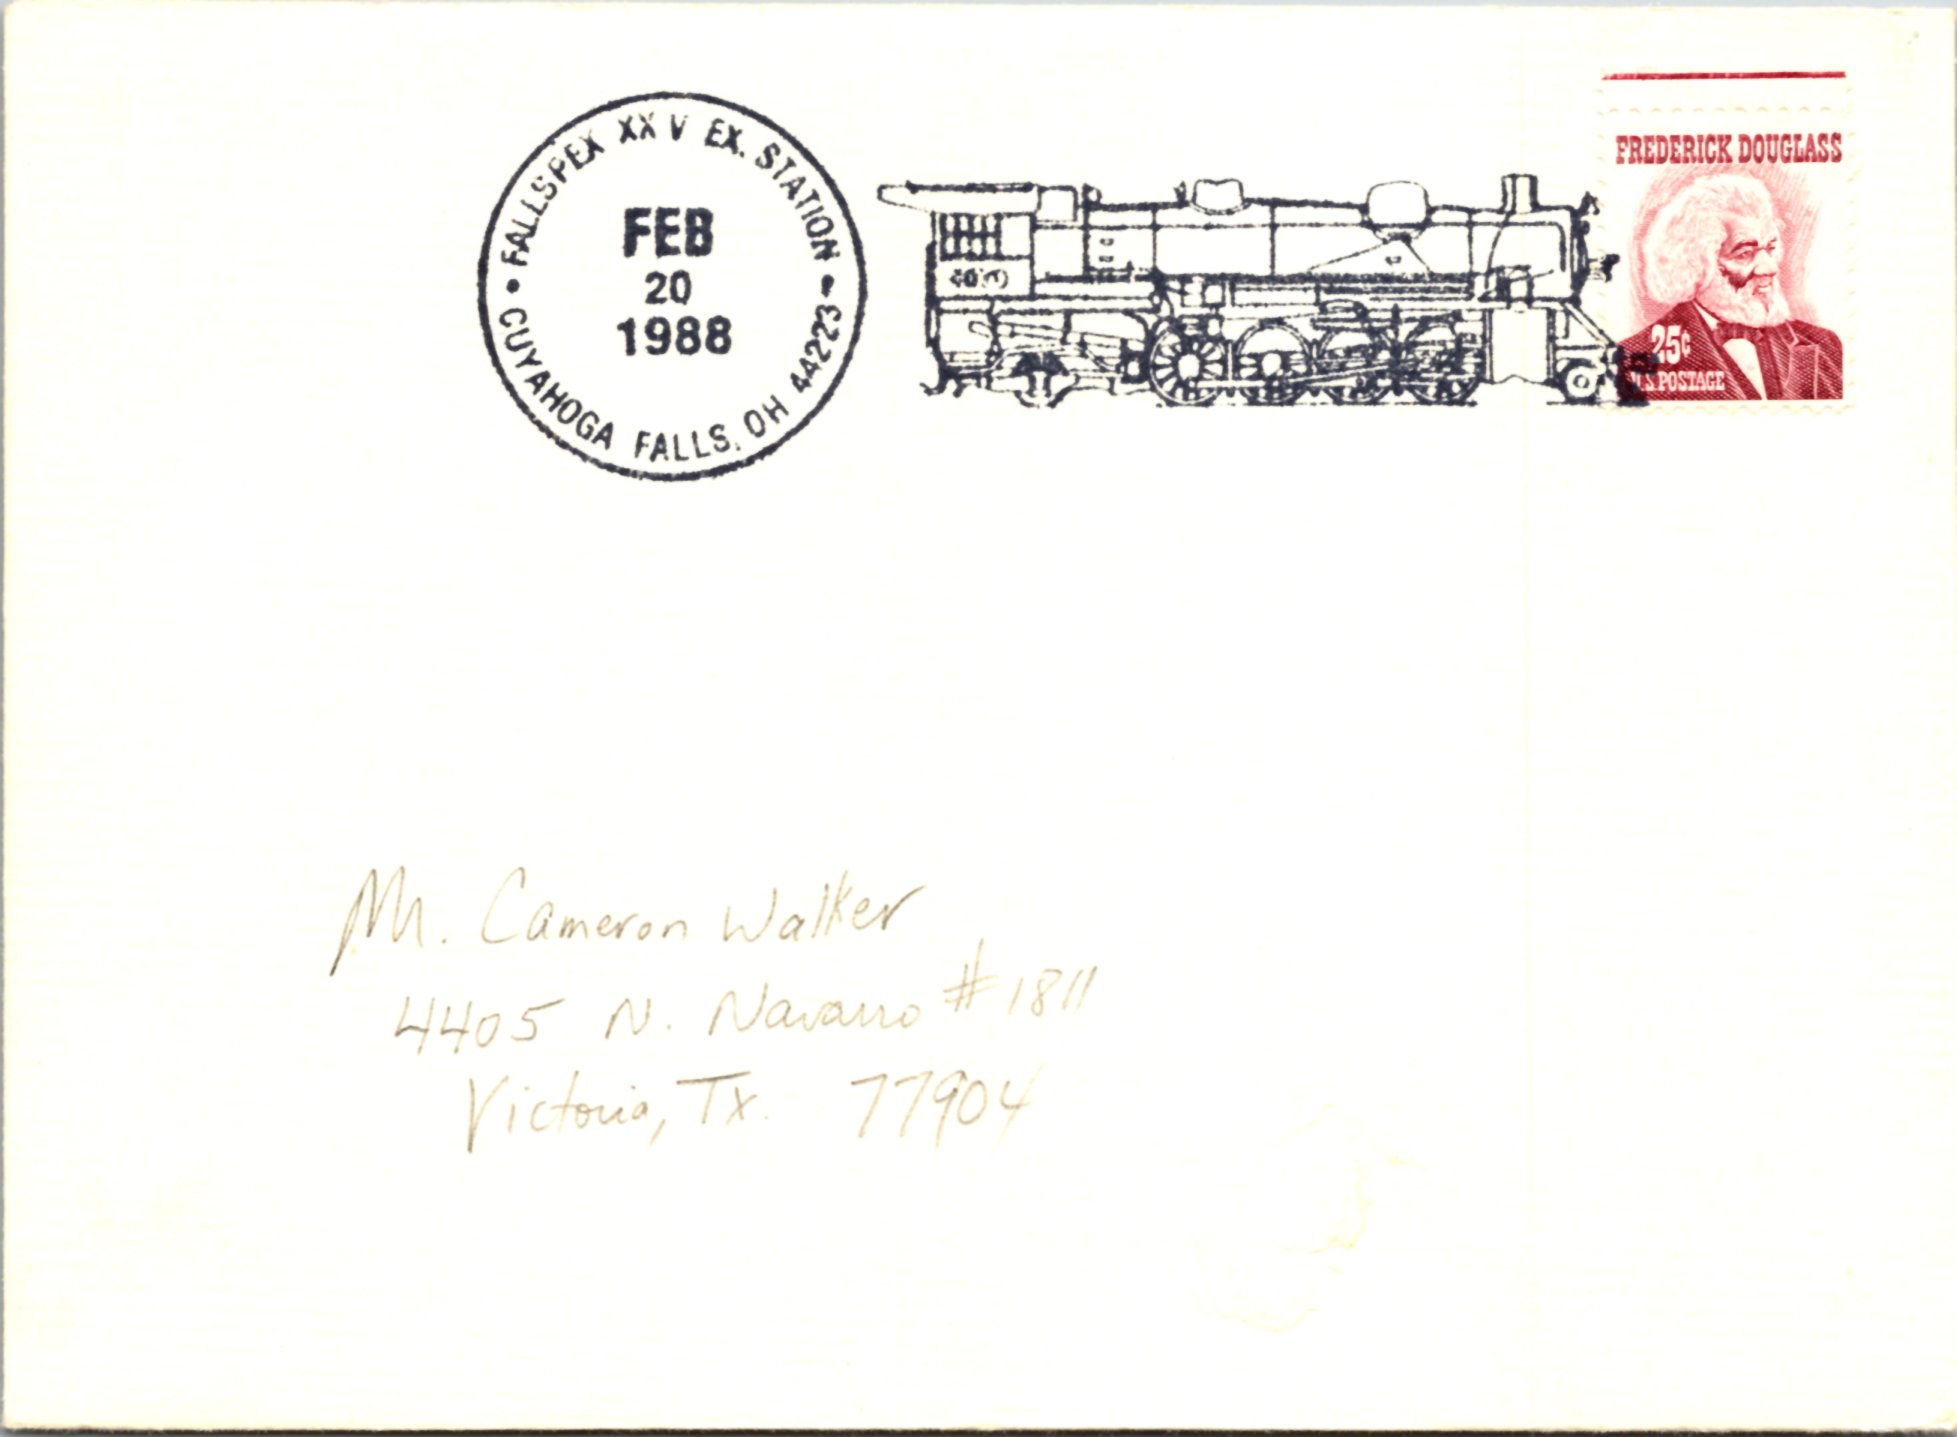 FALLSPEX XXV EX. STATION
FEB
20
1988
CUYAHOGA FALLS, OH 44223
FREDERICK DOUGLASS
25¢
U.S. POSTAGE
Mr. Cameron Walker
4405 N. Navarro #1811
Victoria, Tx. 77904